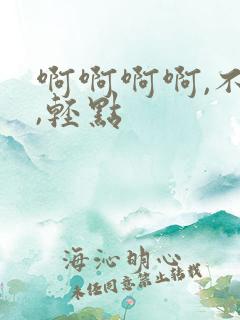 啊啊啊啊,不
,輕點
海沁明心
未经同意禁止转载